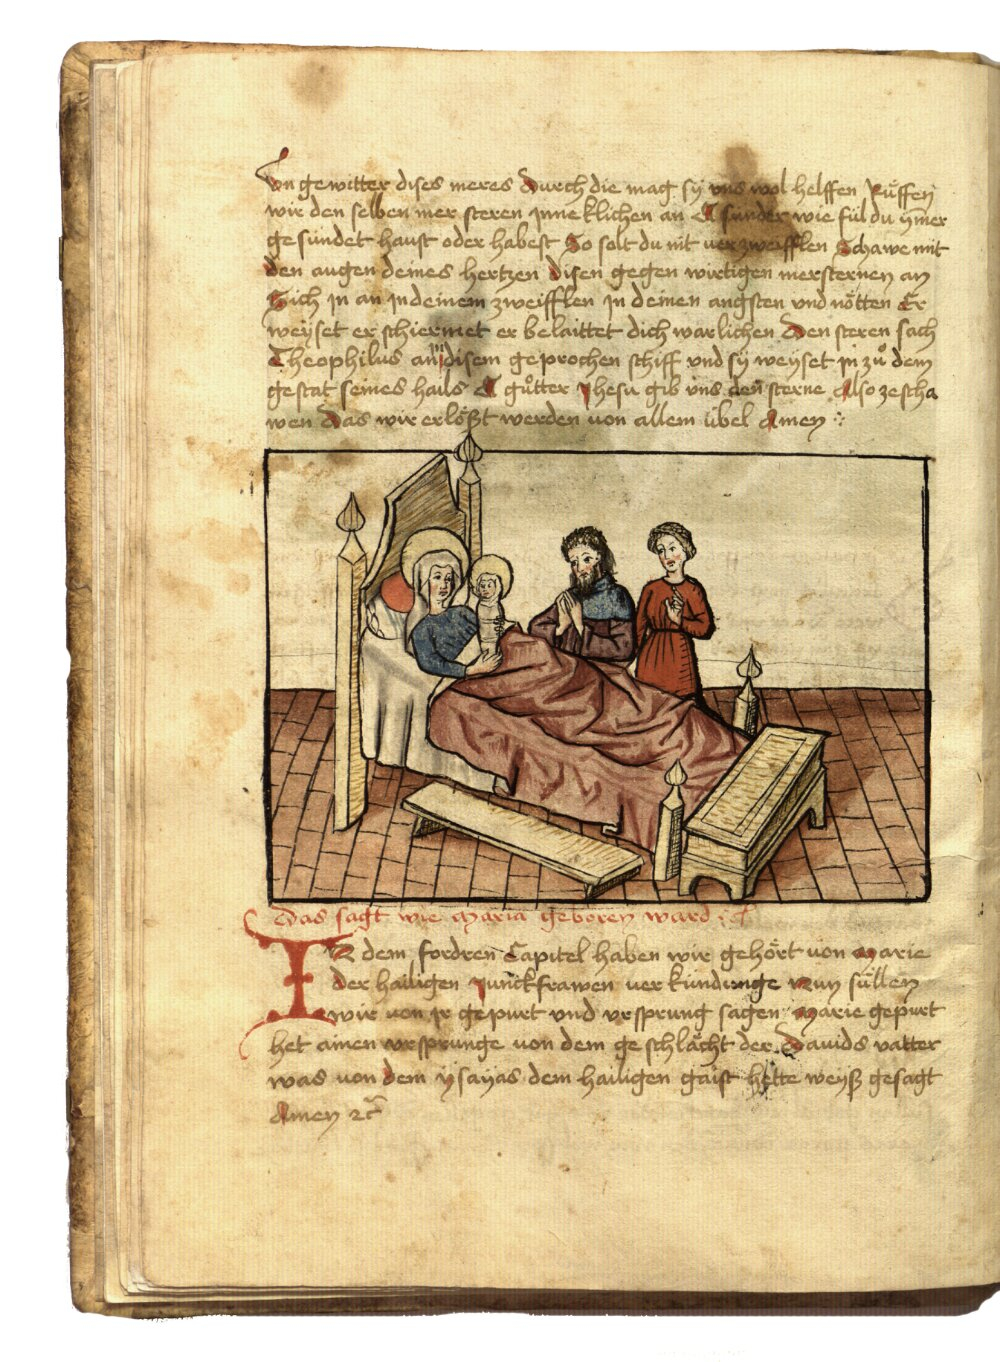 Vngewitter dises meres Durch die mag sÿ vns wol helffen Rüffen
wir den selben mer steren Inneklichen an O sünder wie fül du ÿmer
gesündet haust oder habest So solt du nit verzweifflen Schawe mit
den augen deines hertzen disen gegen wirtigen mersternen an
Sich in an In deinem zweifflen In deinen angsten vnd nötten Er
weÿset er schiermet er belaittet dich warlichen Den steren sach
Theophilus disem geprochen schiff vnd sÿ weÿset in zů dem
gestat seines hails O gůtter Jhesu gib vns den sterne Also zescha
wen Das wir erlößt werden von allem übel Amen
Das sagt wie Maria geboren ward
IN dem fordren Capitel haben wir gehört von Marie
der hailigen Junckfrawen verkündunge Nun süllen
wir von Ir gepurt vnd vrsprung sagen Marie gepurt
het ainen vrsprunge von dem geschlächt der Dauids vatter
was von dem ÿsaÿas dem hailigen gaist hette weÿß gesagt
Amen ⁊c̃